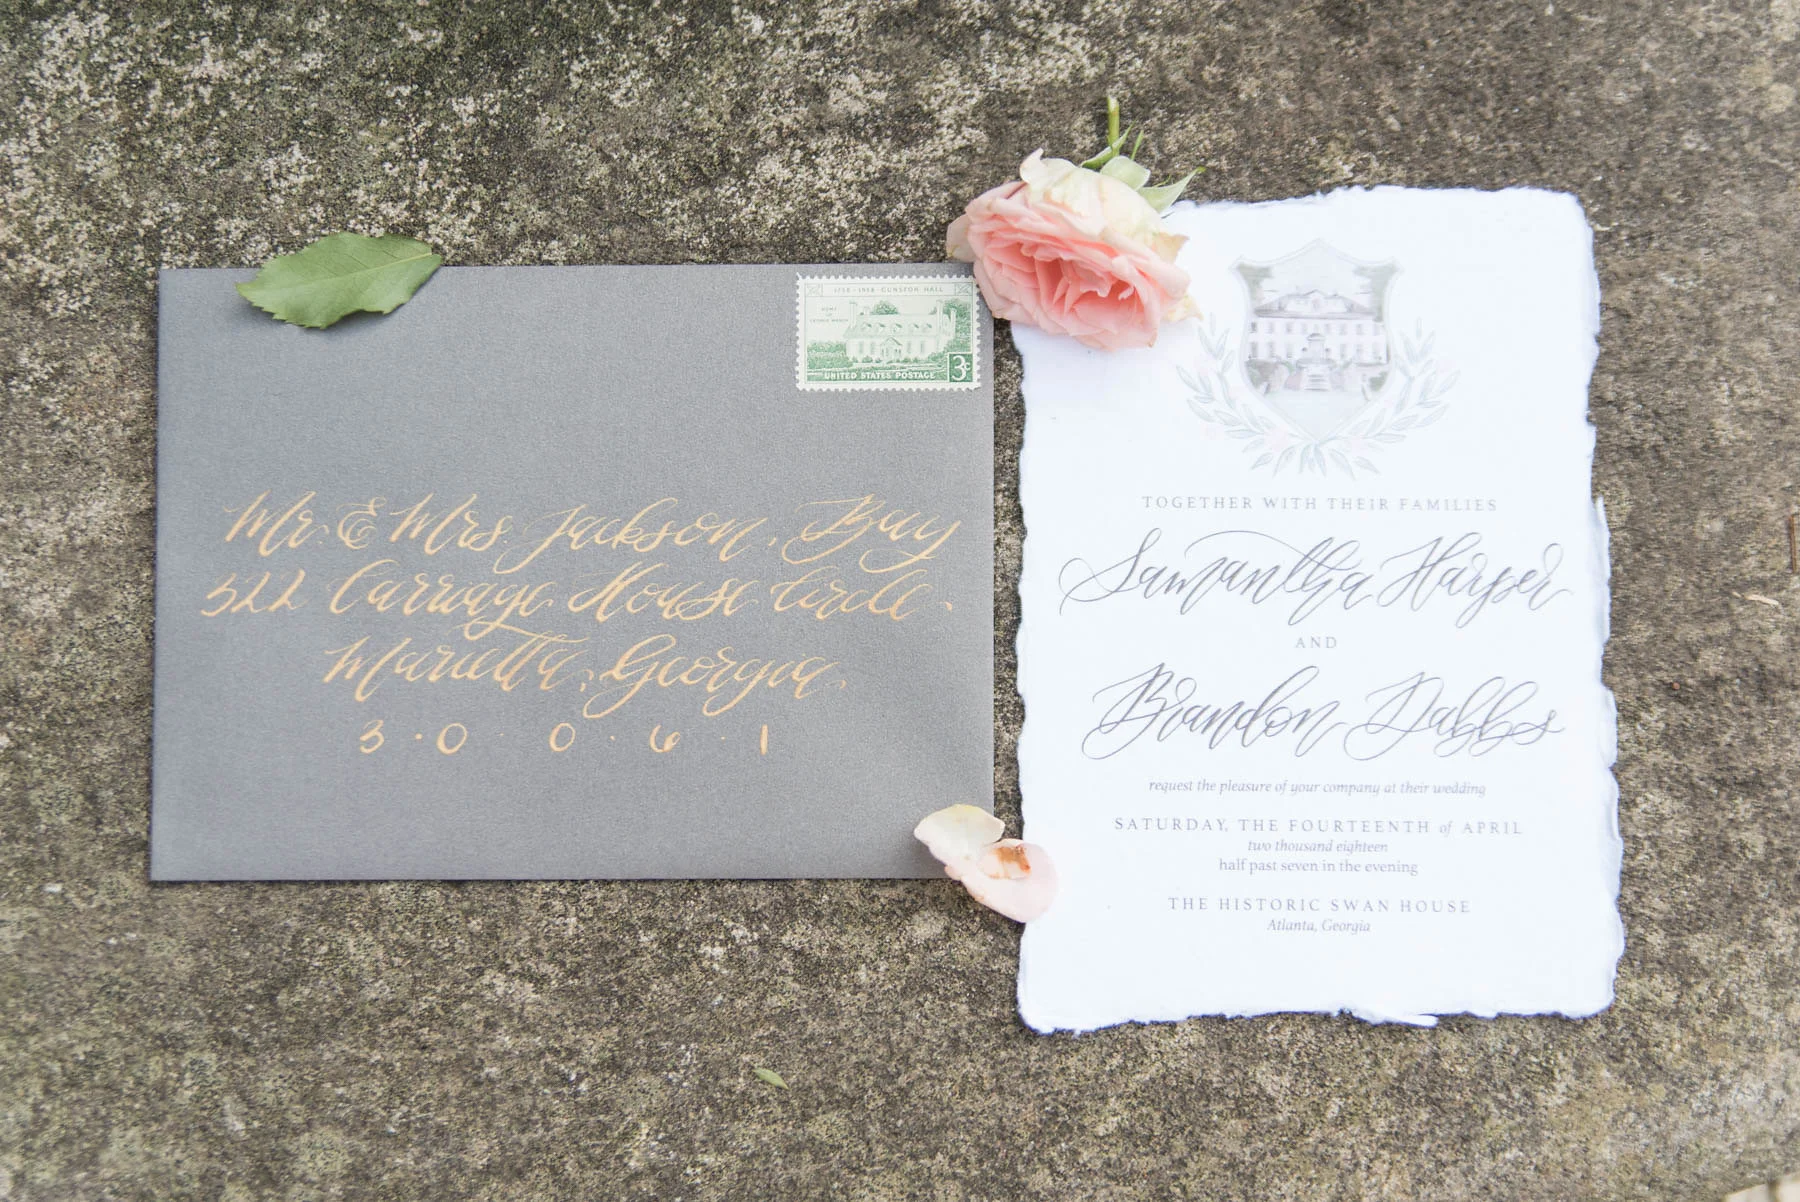 1758-1958-GUNSTON HALL
HOME
OF
GEORGE MASON
UNITED STATES POSTAGE 3c
Mr. & Mrs. Jackson, Bay
322 Carriage House Circle.
Marietta, Georgia.
3 · 0 · 0 · 6 · 1
TOGETHER WITH THEIR FAMILIES
Samantha Harper
AND
Brandon Dabbs
request the pleasure of your company at their wedding
SATURDAY, THE FOURTEENTH of APRIL
two thousand eighteen
half past seven in the evening
THE HISTORIC SWAN HOUSE
Atlanta, Georgia